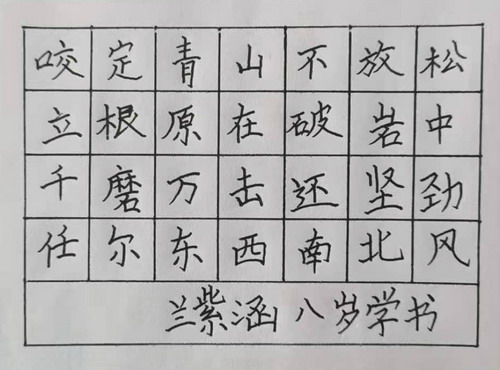 咬定青山不放松
立根原在破岩中
千磨万击还坚劲
任尔东西南北风
兰紫涵 八岁学书